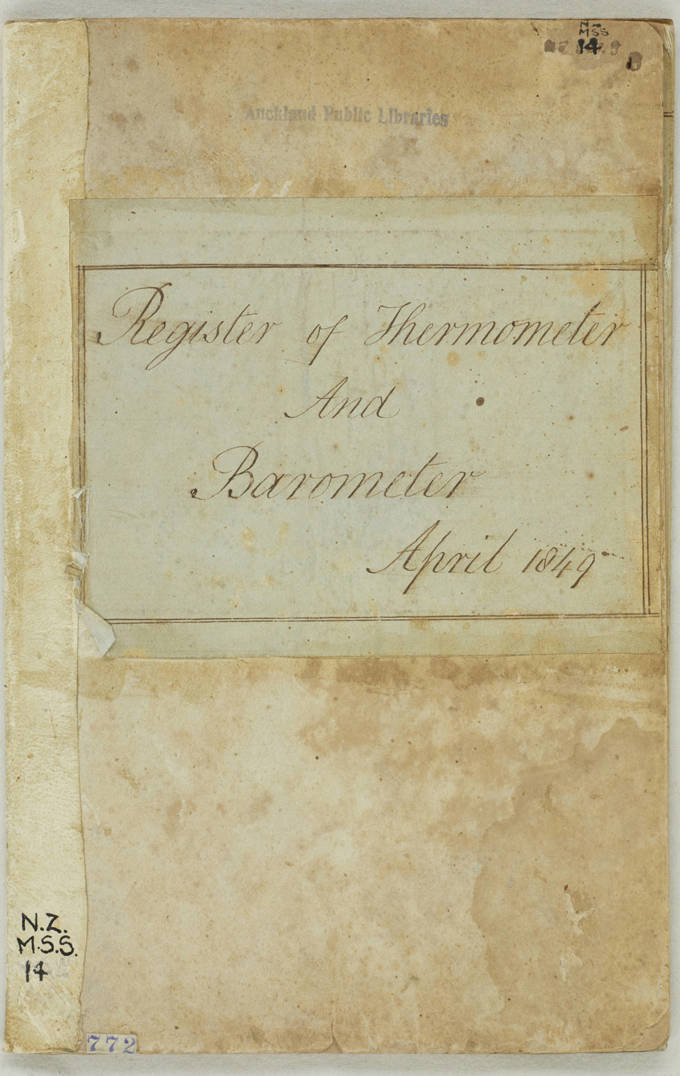 N.Z.
MSS
14
Auckland Public Libraries
Register of Thermometer
And
Barometer
April 1849
N.Z.
M.S.S.
14
772